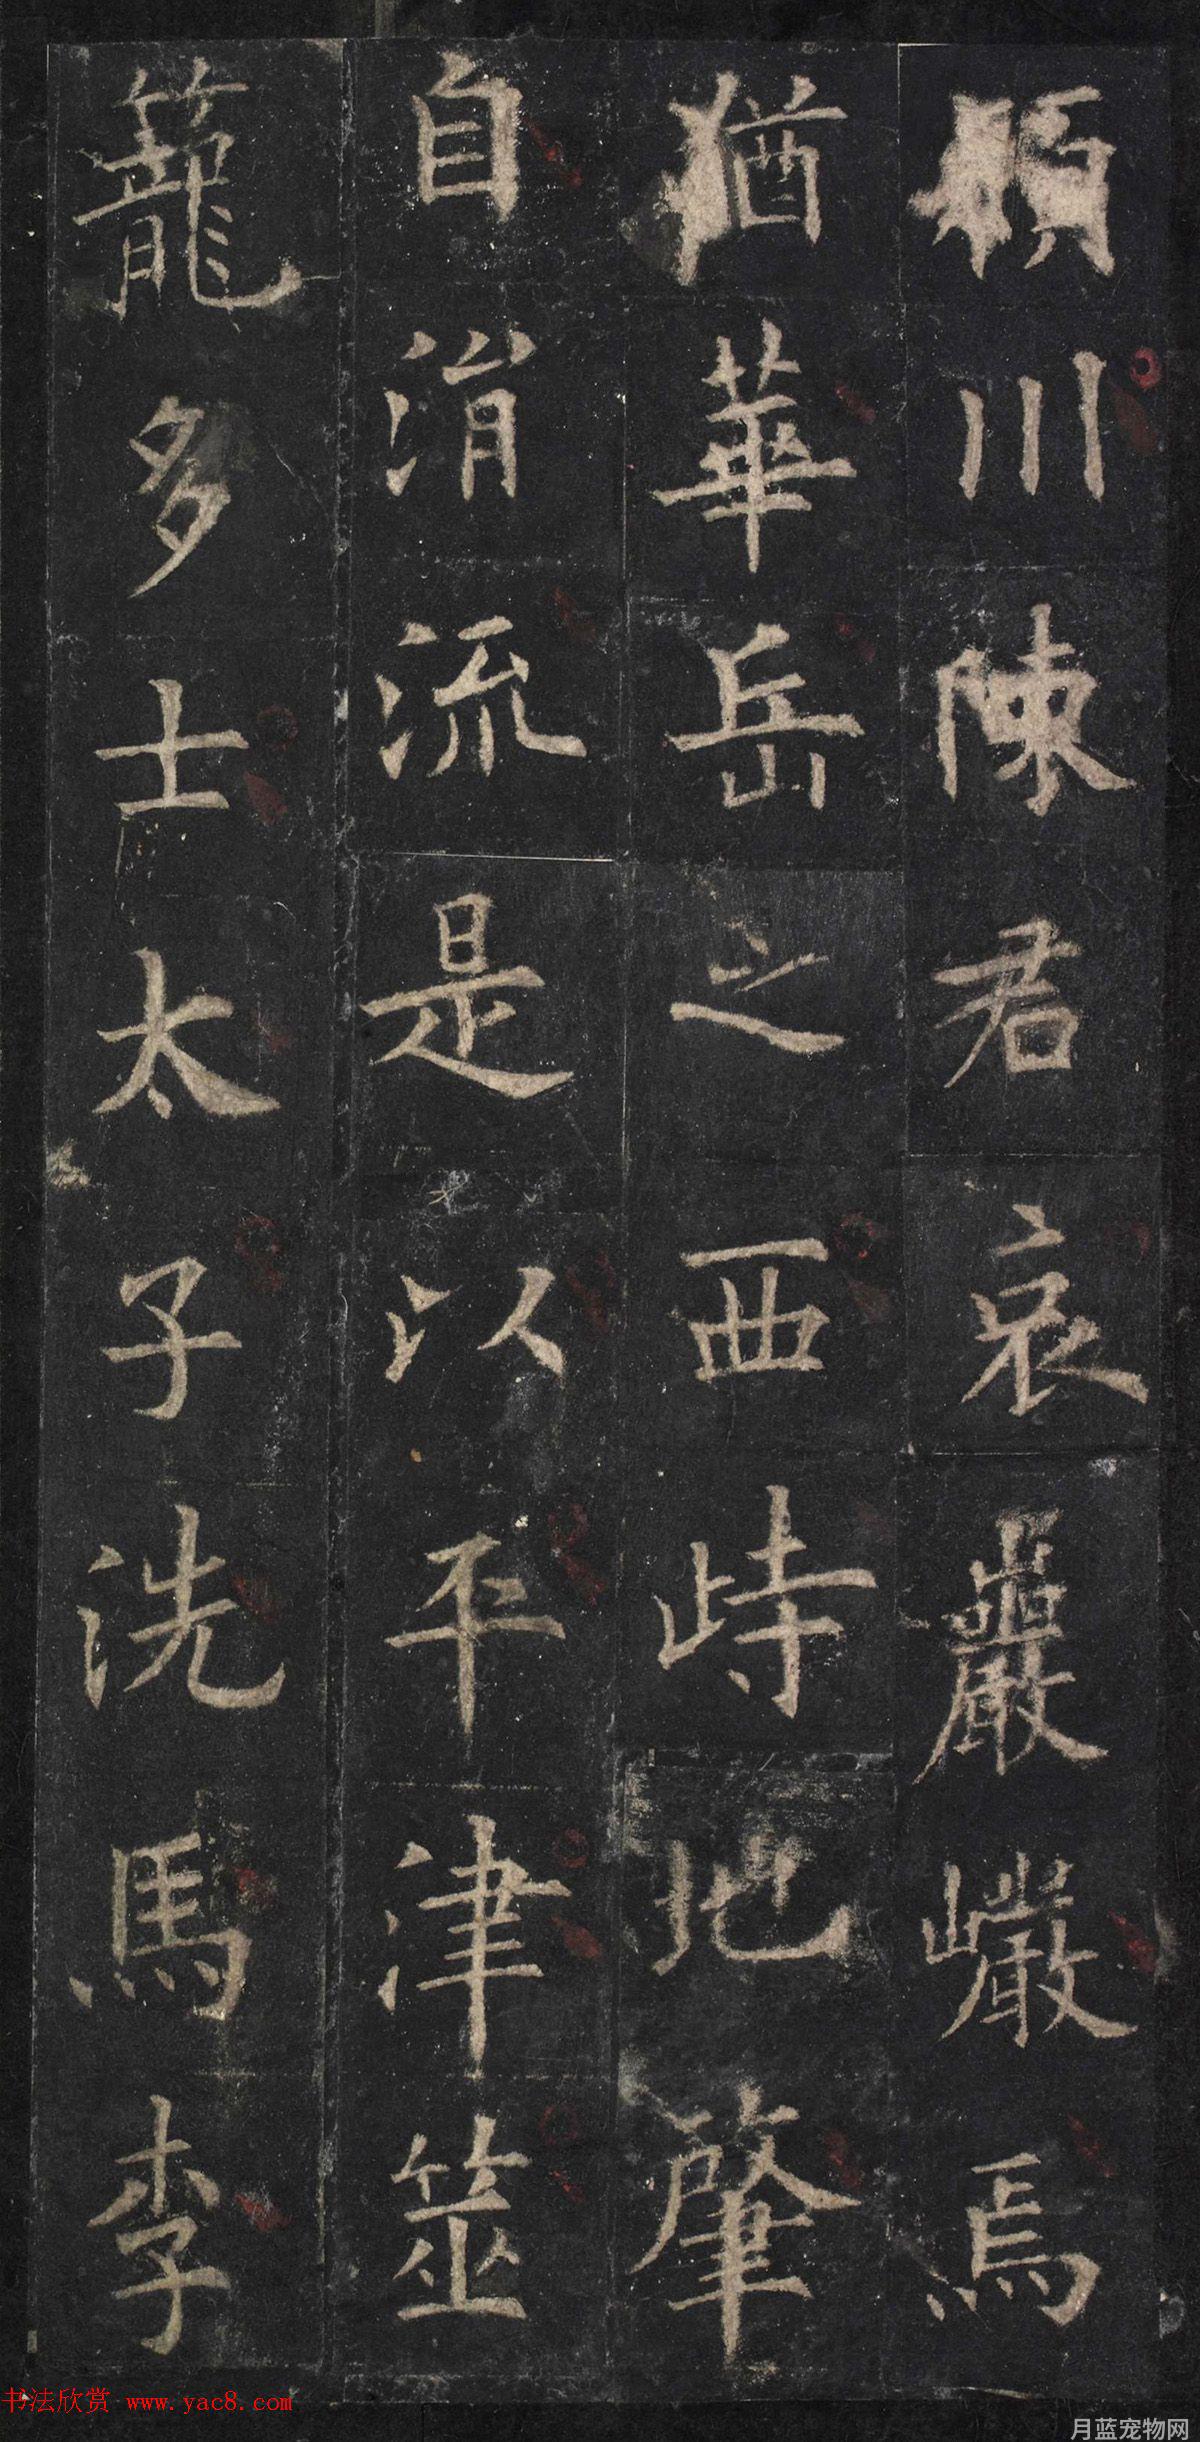 頴川陳君巖巖焉
猶華岳之西峙地肇
自涓流是以平津筮
籠多士太子洗馬李
书法欣赏 www.yac8.com
月蓝宠物网